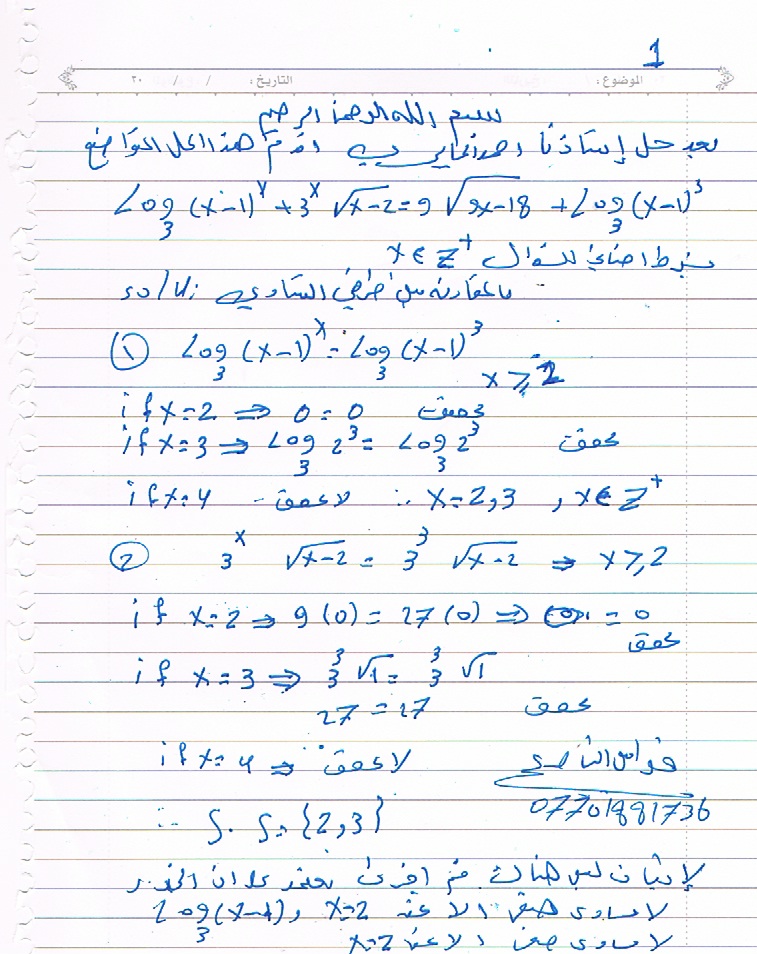 1
الموضوع : التاريخ : / / ٢٠
بسم الله الرحمن الرحيم
بعد حل إستاذنا احمد أقدم هذا الحل المتواضع
Log₃ (x-1)ˣ + 3ˣ √x-2 = 9 √9x-18 + Log₃ (x-1)³
بشرط اضافي للسؤال x ∈ Z⁺
بالمقارنة بين طرفي التساوي sol//:
① Log₃ (x-1)ˣ = Log₃ (x-1)³
x ⩾ 2
if x=2 ⇒ 0 = 0 تحقق
if x=3 ⇒ Log₃ 2³ = Log₃ 2³ تحقق
if x=4 لا تحقق ∴ x=2,3 , x∈Z⁺
② 3ˣ √x-2 = 3³ √x-2 ⇒ x ⩾ 2
if x=2 ⇒ 9(0) = 27(0) ⇒ = 0
تحقق
if x=3 ⇒ 3³ √1 = 3³ √1
27 = 27 تحقق
if x=4 ⇒ لا تحقق
07701881736
∴ S.S={2,3}
لإثبات ليس هناك قيم اخرى نعتمد على ان الجذر
لا يساوي صفر الا عند x=2 و Log₃(x-1)
لا يساوي صفر الا عند x=2